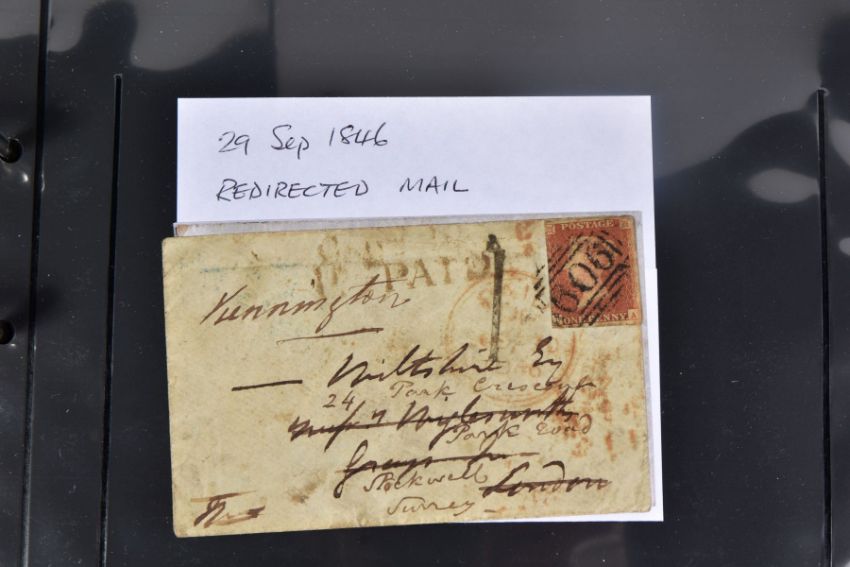 29 Sep 1846
REDIRECTED MAIL
PAID
1
POSTAGE
606
ONE PENNY A
Kennington
— Wiltshire Esq
24 Park Crescent
Park Road
Stockwell
Surrey London